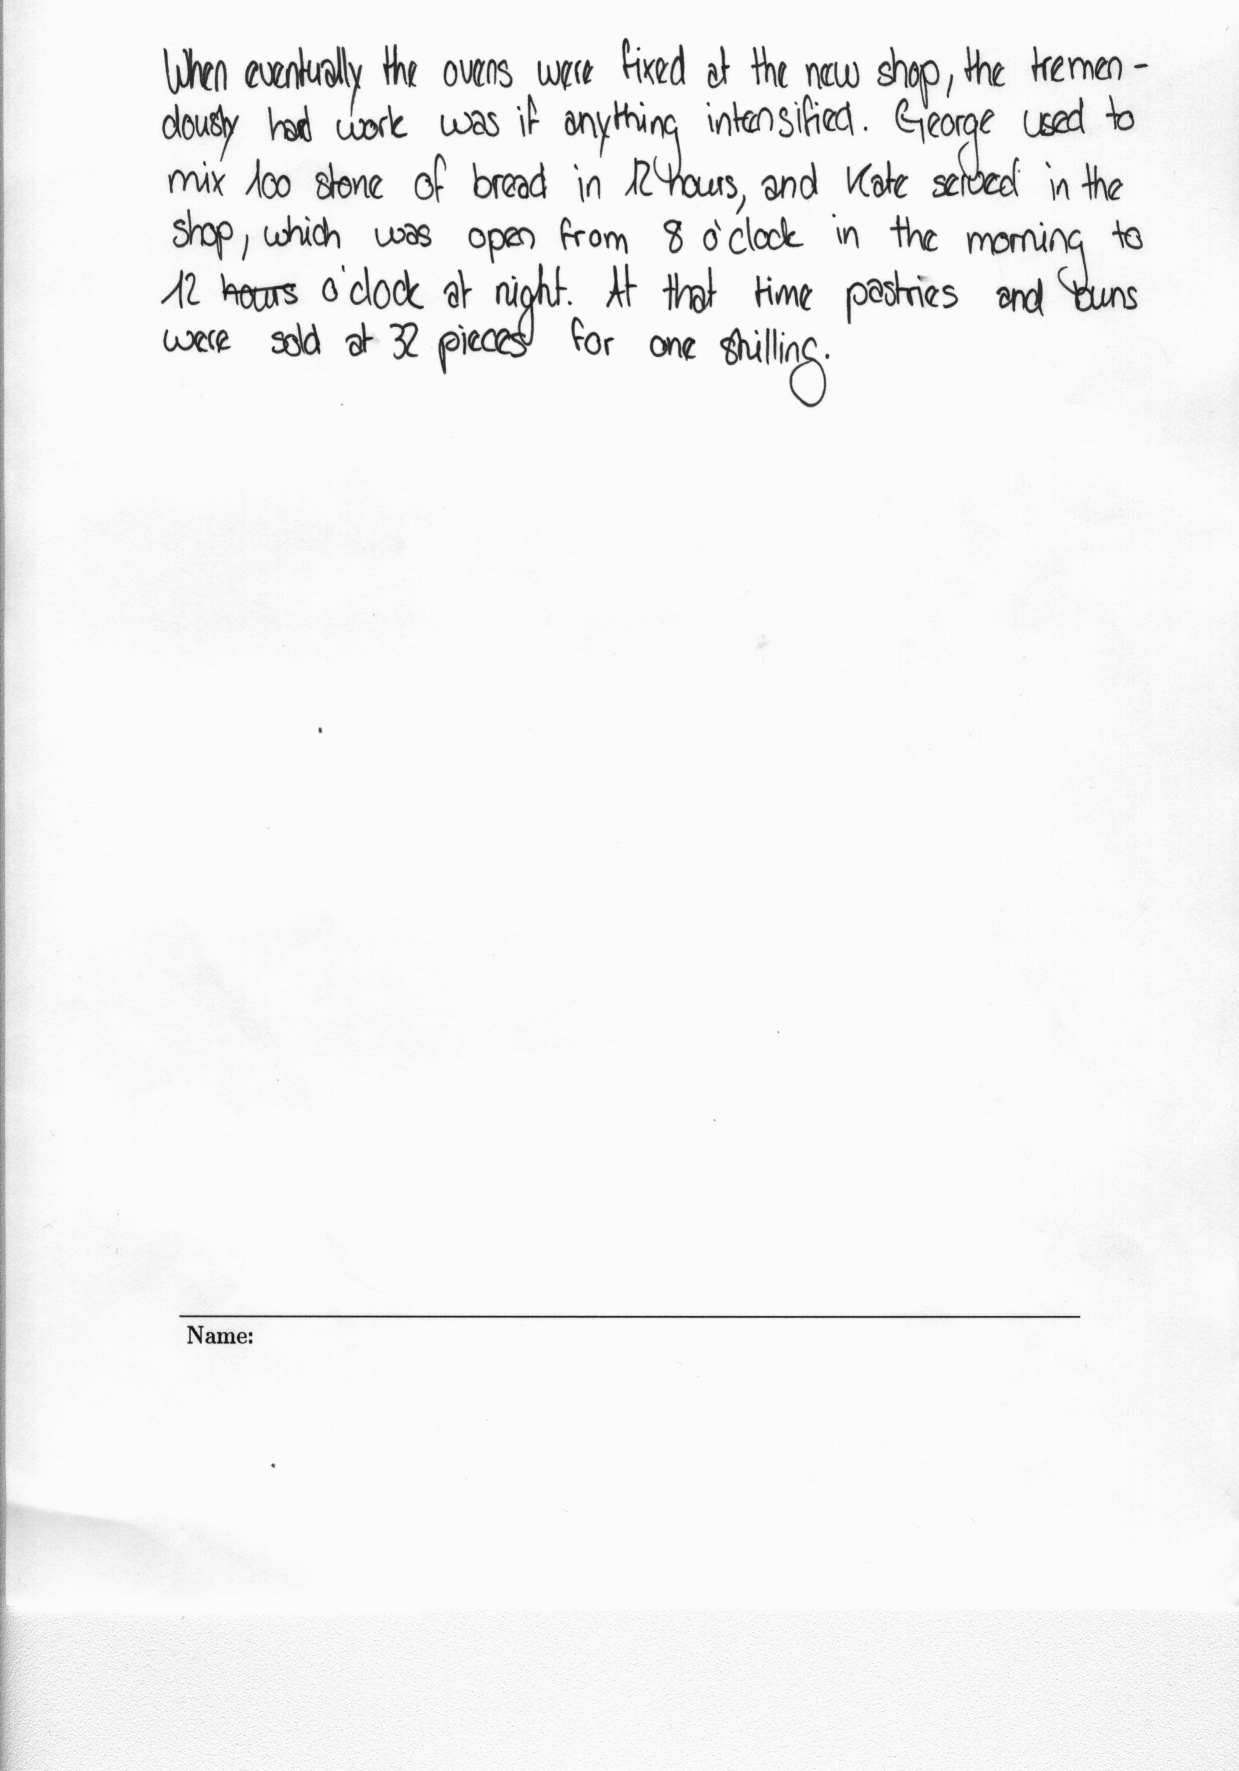 When eventually the ovens were fixed at the new shop, the tremen-
dously hard work was if anything intensified. George used to
mix 100 stone of bread in 12 hours, and Kate served in the
shop, which was open from 8 o'clock in the morning to
12 hours o'clock at night. At that time pastries and buns
were sold at 32 pieces for one shilling.
Name: